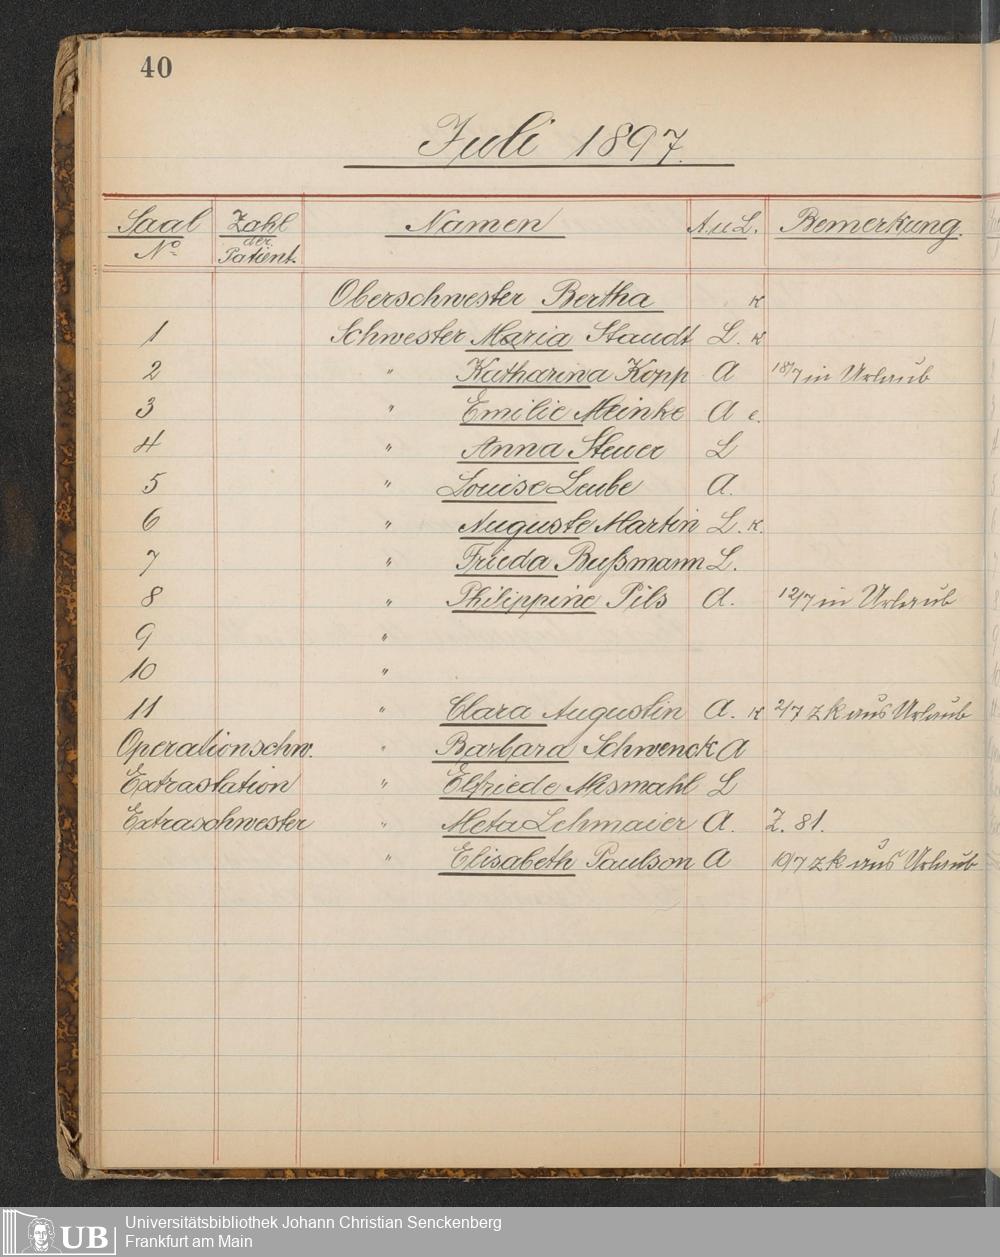 40
Juli 1897.
Saal No Zahl der Patient. Namen A. u L. Bemerkung.
Oberschwester Bertha
1 Schwester Maria Staudt L.
2 " Katharina Kopp A 18/7 in Urlaub
3 " Emilie Meinke A
4 " Anna Steuer L
5 " Louise Leube A.
6 " Auguste Martin L.
7 " Frieda Bußmann L.
8 " Philippine Pils A. 12/7 in Urlaub
9 "
10 "
11 " Clara Augustin A. 2/7 zk aus Urlaub
Operationschw. " Barbara Schwenck A
Extrastation " Elfriede L
Extraschwester " Meta Lehmaier A. Z. 81.
" Elisabeth Paulson A 10/7 zk aus Urlaub
UB
Universitätsbibliothek Johann Christian Senckenberg
Frankfurt am Main